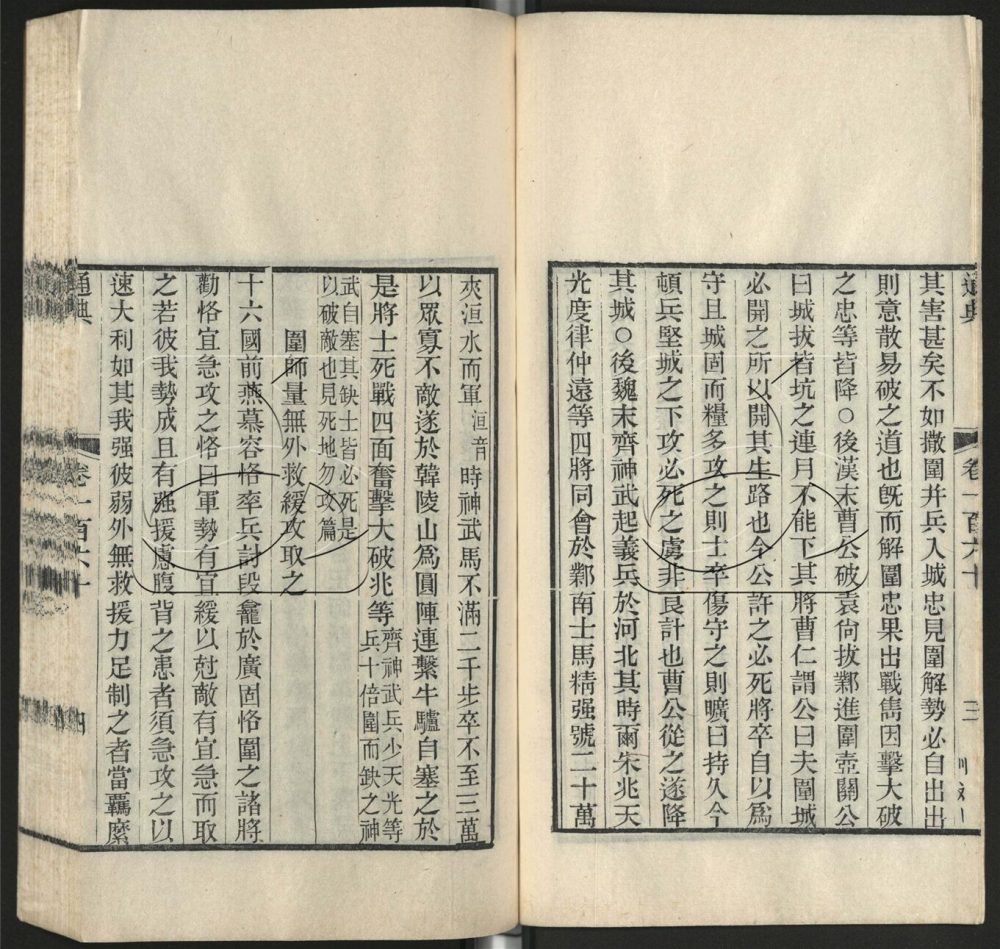 通典
卷一百六十
三
其害甚矣不如撒圍并兵入城忠見圍解勢必自出出
則意散易破之道也旣而解圍忠果出戰雋因擊大破
之忠等皆降○後漢末曹公破袁尙拔鄴進圍壺關公
曰城拔皆坑之連月不能下其將曹仁謂公曰夫圍城
必開之所以開其生路也今公許之必死將卒自以爲
守且城固而糧多攻之則士卒傷守之則曠日持久今
頓兵堅城之下攻必死之虜非良計也曹公從之遂降
其城○後魏末齊神武起義兵於河北其時爾朱兆天
光度律仲遠等四將同會於鄴南士馬精强號二十萬
夾洹水而軍洹音時神武馬不滿二千步卒不至三萬
以眾寡不敵遂於韓陵山爲圓陣連繫牛驢自塞之於
是將士死戰四面奮擊大破兆等齊神武兵少天光等
兵十倍圍而缺之神
武自塞其缺士皆必死是
以破敵也見死地勿攻篇
圍師量無外救緩攻取之
十六國前燕慕容恪率兵討段龕於廣固恪圍之諸將
勸恪宜急攻之恪曰軍勢有宜緩以尅敵有宜急而取
之若彼我勢成且有强援慮腹背之患者須急攻之以
速大利如其我强彼弱外無救援力足制之者當羈縻
通典
卷一百六十
四